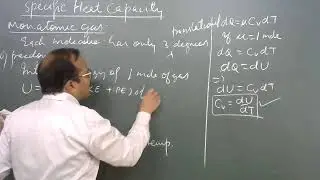 Specific Heat Capacity
Monatomic gas
Each molecule has only 3 degrees
of freedom
translational
of 1 mole of gas
U = KE + PE) of
temp.
dQ = μ Cv dT
If μ = 1 mole
dQ = Cv dT
dQ = dU
=> dU = Cv dT
Cv = dU/dT ✓